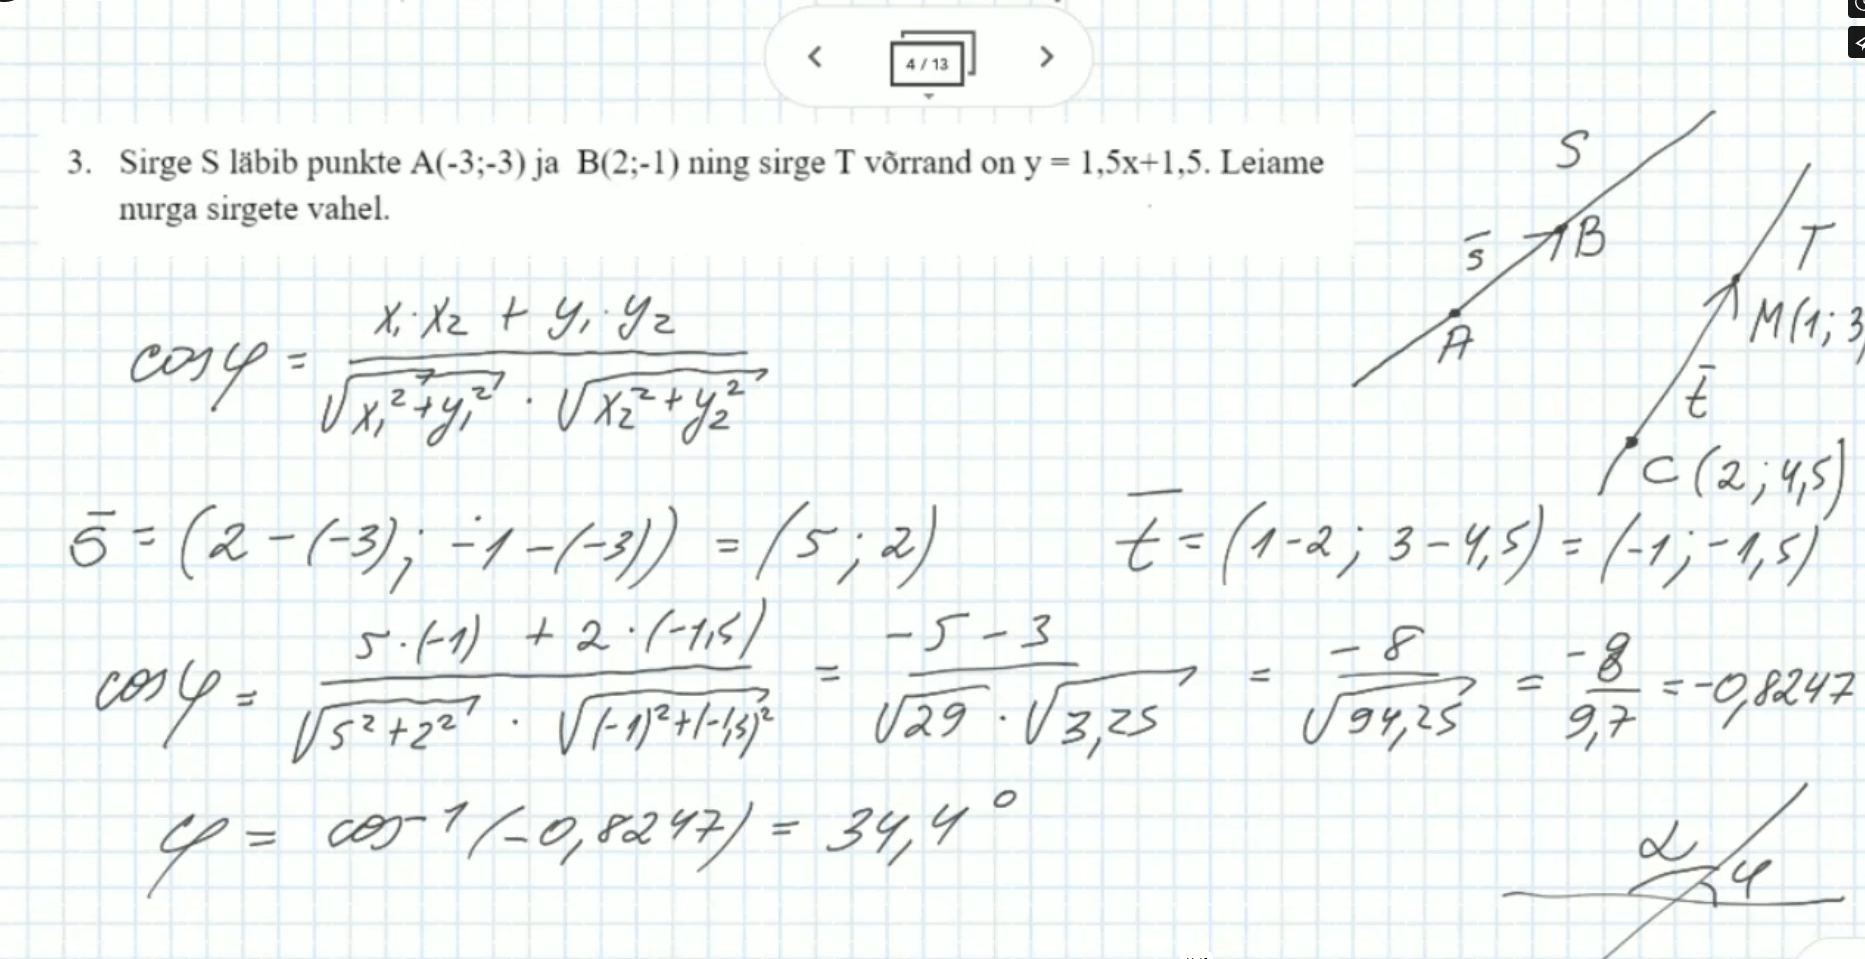 4 / 13
3. Sirge S läbib punkte A(-3;-3) ja B(2;-1) ning sirge T võrrand on y = 1,5x+1,5. Leiame
nurga sirgete vahel.
S
s̄
B
A
T
M(1; 3)
t̄
C (2 ; 4,5)
cosφ = (x₁·x₂ + y₁·y₂) / (√(x₁²+y₁²) · √(x₂²+y₂²))
s̄ = (2-(-3); -1-(-3)) = (5 ; 2)
t̄ = (1-2 ; 3-4,5) = (-1 ; -1,5)
cosφ = (5·(-1) + 2·(-1,5)) / (√(5²+2²) · √((-1)²+(-1,5)²)) = (-5-3) / (√29 · √3,25) = -8/√94,25 = -8/9,7 = -0,8247
φ = cos⁻¹(-0,8247) = 34,4°
α φ